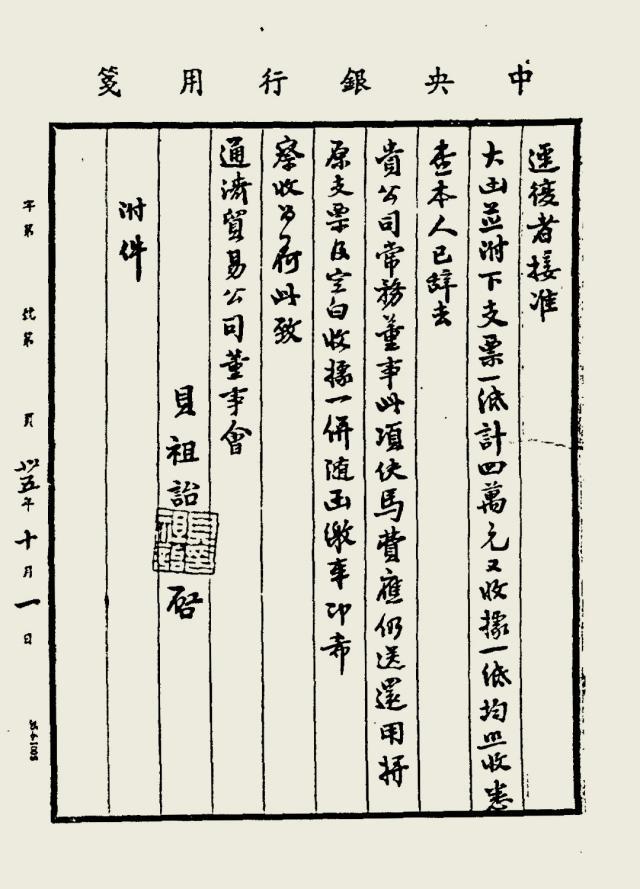 中央銀行用箋
逕復者接准
大函並附下支票一紙計四萬元又收據一紙均照收悉
查本人已辭去
貴公司常務董事此項伕馬費應仍送還用特
原支票及空白收據一併隨函繳奉即希
察收為荷此致
通濟貿易公司董事會
貝祖詒
啓
附件
字第 號第 頁 卅五年十月一日